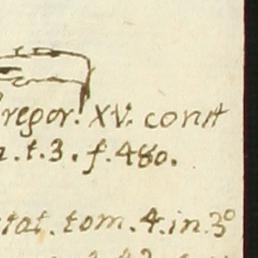 regor. XV. const
. t. 3. f. 480.
tat. tom. 4. in. 3º